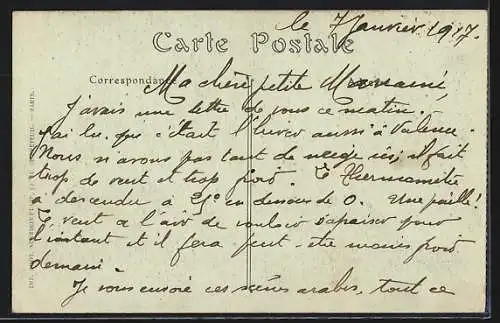 le 7 Janvier 1917.
Carte Postale
Correspondance
Ma chère petite Mamami,
J'avais une lettre de vous ce matin.
J'ai lu que c'était l'hiver aussi à Valence.
Nous n'avons pas tant de neige ici; il fait
trop de vent et trop froid. Le Thermomètre
a descendu à 25° en dessous de 0. Une paille!
Le vent a l'air de vouloir s'apaiser pour
l'instant et il fera peut-être moins froid
demain.
Je vous envoie ces scènes arabes, tout ce